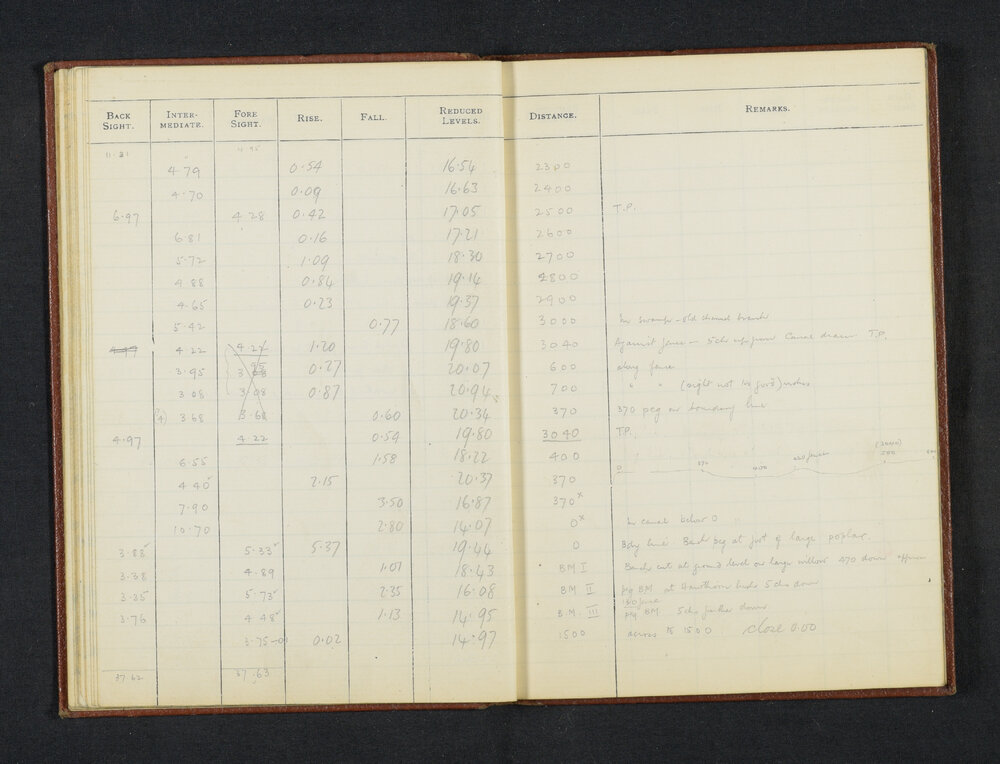 BACK SIGHT. INTER-MEDIATE. FORE SIGHT. RISE. FALL. REDUCED LEVELS. DISTANCE. REMARKS.
11.21 4.95
4.79 0.54 16.54 2300
4.70 0.09 16.63 2400
6.97 4.28 0.42 17.05 2500 T.P.
6.81 0.16 17.21 2600
5.72 1.09 18.30 2700
4.88 0.84 19.14 2800
4.65 0.23 19.37 2900
5.42 0.77 18.60 3000 In swamp - old channel branch
4.97 4.22 4.22 1.20 19.80 3040 Against fence - 5 chs up from Canal T.P.
3.95 0.27 20.07 600 along fence
3.08 3.08 0.87 20.94 700 " " (sight not too good)
(4) 3.68 3.68 0.60 20.34 370 370 peg on boundary line
4.97 4.22 0.54 19.80 3040 T.P.
6.55 1.58 18.22 400 0 370 400 (3040) 500 600
4.40 2.15 20.37 370
7.90 3.50 16.87 370x
10.70 2.80 14.07 0x In canal below 0
3.88 5.33 5.37 19.44 0 Bdy line. Bench peg at foot of large poplar.
3.38 4.89 1.01 18.43 BM I Bench cut at ground level on large willow 470 down
3.35 5.73 2.35 16.08 BM II peg BM at Hawthorn 5 chs down
3.76 4.48 1.13 14.95 B.M. III peg BM 5 chs further down
3.75 0.02 14.97 1500 across to 1500 close 0.00
37.62 37.63